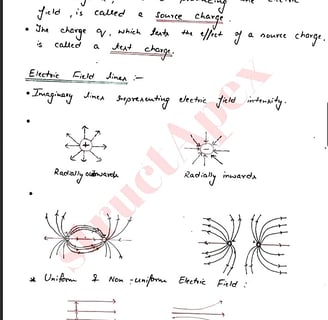 field, is called a source charge.
• The charge q, which tests the effect of a source charge.
is called a test charge.
Electric Field lines :-
• Imaginary lines representing electric field intensity.
+
-
Radially outwards
Radially inwards
StructApex
* Uniform & Non-uniform Electric Field :